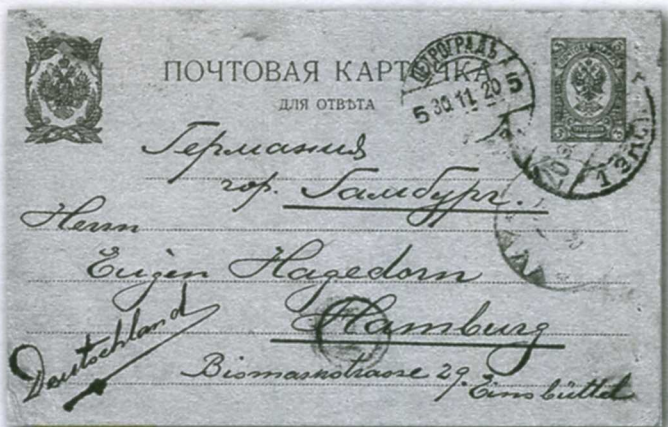 ПОЧТОВАЯ КАРТОЧКА
ДЛЯ ОТВѢТА
ПЕТРОГРАДЪ
5 30.11.20 5
1 ЭКСП
Германия
гор. Гамбург.
Herrn
Eugen Hagedorn
Hamburg
Deutschland
Bismarkstrasse 29. Eimsbüttel